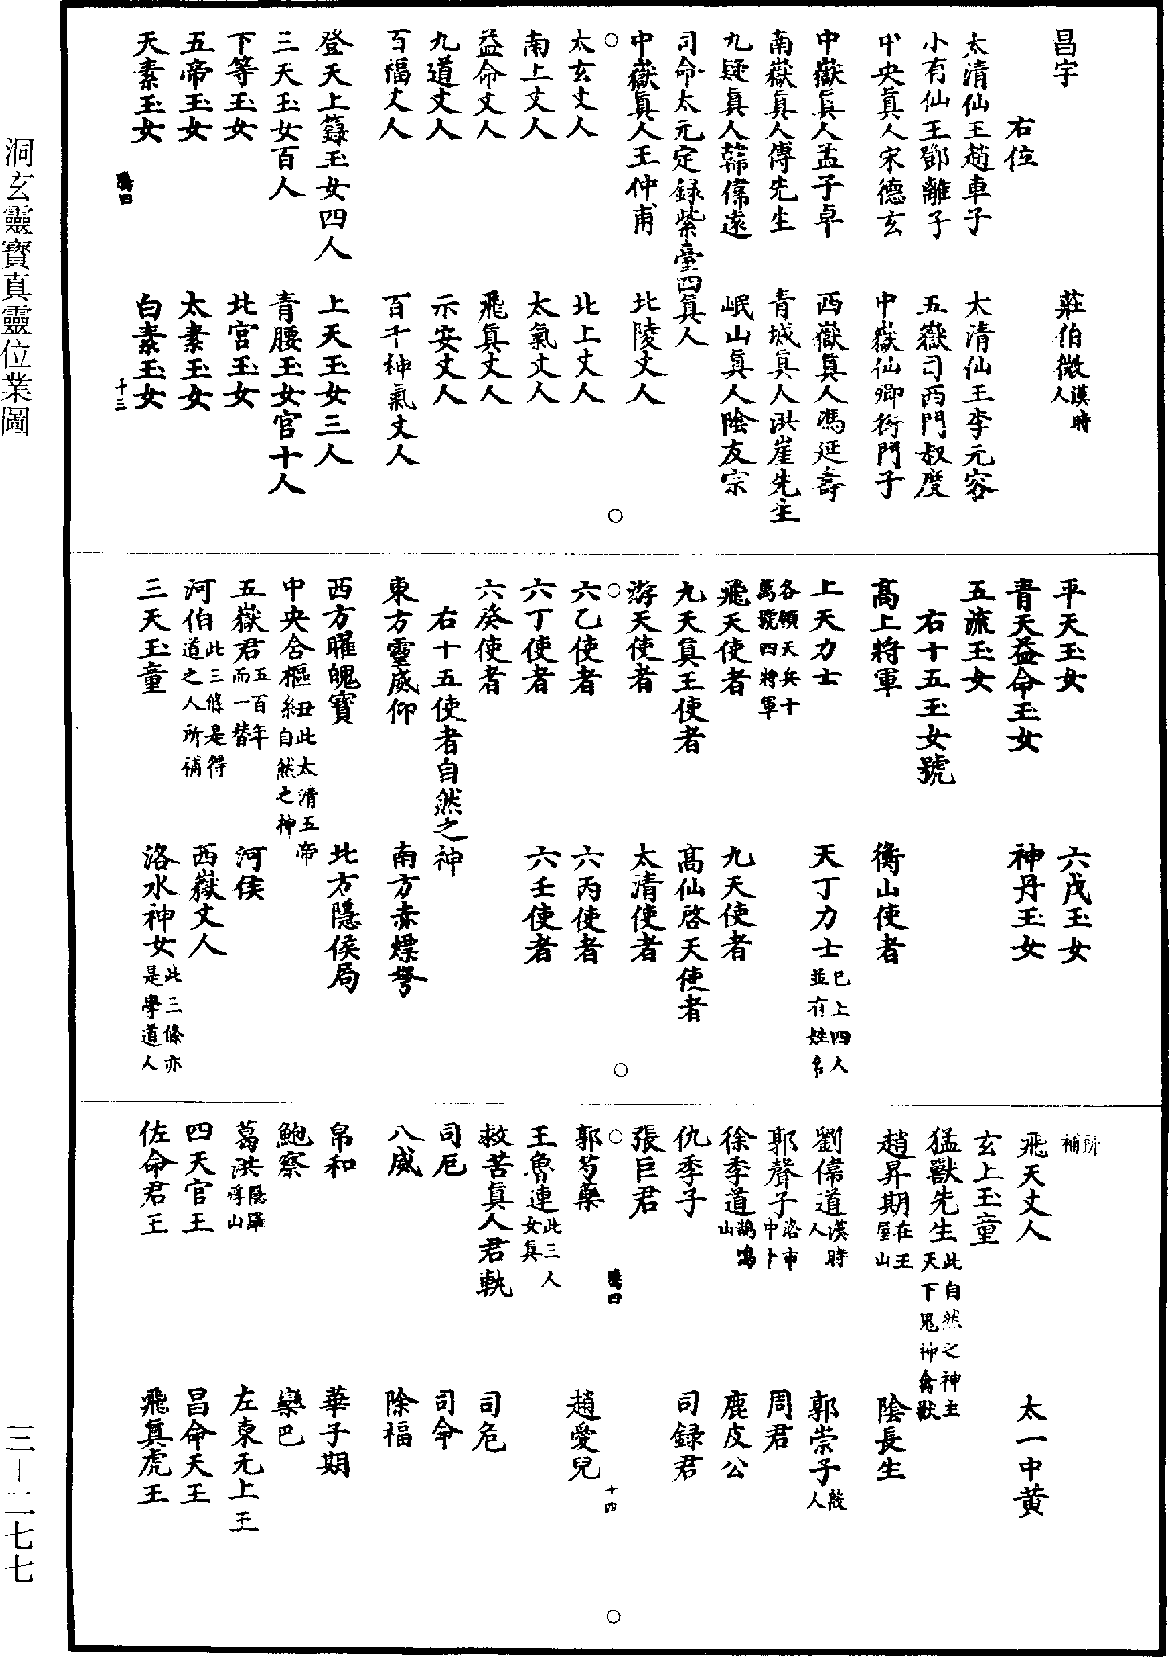 昌宇　莊伯微漢時人
右位
太清仙王趙車子　太清仙王李元容
小有仙王鄧離子　五嶽司西門叔度
中央真人宋德玄　中嶽仙卿衍門子
中嶽真人孟子卓　西嶽真人馮延壽
南嶽真人傅先生　青城真人洪崖先生
九疑真人韓偉遠　岷山真人陰友宗
司命太元定録紫臺四真人
中嶽真人王仲甫　北陵丈人
太玄丈人　北上丈人
南上丈人　太氣丈人
益命丈人　飛真丈人
九道丈人　示安丈人
百福丈人　百千神氣丈人
登天上籙玉女四人　上天玉女三人
三天玉女百人　青腰玉女官十人
下等玉女　北宮玉女
五帝玉女　太素玉女
天素玉女　白素玉女
十三
平天玉女　六戊玉女
青天益命玉女　神丹玉女
五流玉女
右十五玉女號
高上將軍　衡山使者
上天力士　天丁力士已上四人並有姓名
各領天兵十萬號四將軍
飛天使者　九天使者
九天真王使者　高仙啓天使者
游天使者　太清使者
六乙使者　六丙使者
六丁使者　六壬使者
六癸使者
右十五使者自然之神
東方靈威仰　南方赤熛弩
西方曜魄寶　北方隱侯局
中央含樞紐此太清五帝自然之神
五嶽君五百年而一替　河侯
河伯此三條是得道之人所補　西嶽丈人
三天玉童　洛水神女此三條亦是學道人
所補
飛天丈人　太一中黄
玄上玉童
猛獸先生此自然之神主天下鬼神禽獸
趙昇期在王屋山　陰長生
劉偉道漢時人　郭崇子殷人
郭聲子洛市中卜　周君
徐季道鵠鳴山　鹿皮公
仇季子　司録君
張巨君
郭芍藥　趙愛兒
王魯連此三人女真
救苦真人君軌　司危
司厄　司命
八威　除福
帛和　華子期
鮑察　欒巴
葛洪隱羅浮山　左東无上王
四天官王　昌命天王
佐命君王　飛真虎王
十四
洞玄靈寶真靈位業圖
三—二七七